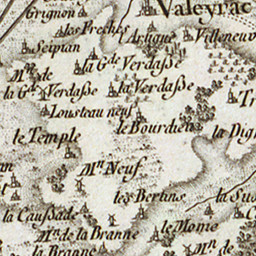 Valeyrac
Grignon
los Freches
Artigue
Villeneuv
Seipian
la Gde Verdaße
Mn de
la Gde Verdaße
la Verdaße
Lousteau neuf
le Bourdieu
le Temple
la Dig
Mn Neuf
les Bertins
la Caußade
la Sud
Mn de la Branne
le Moine
Mn de
la Branne